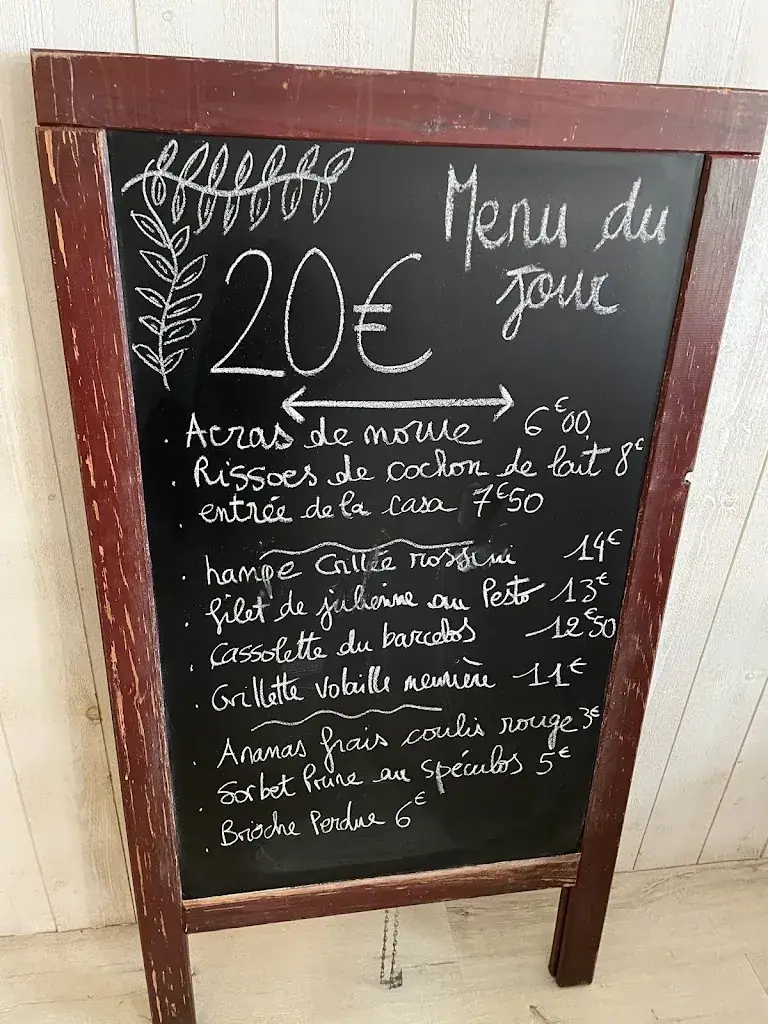 Menu du
jour
20€
Acras de morue 6€00
Rissoes de cochon de lait 8€
entrée de la casa 7€50
hampe Grillée rossini 14€
filet de julienne au Pesto 13€
Cassolette du barcelos 12€50
Grillette volaille meunière 11€
Ananas frais coulis rouge 3€
Sorbet Prune au Spéculos 5€
Brioche Perdue 6€